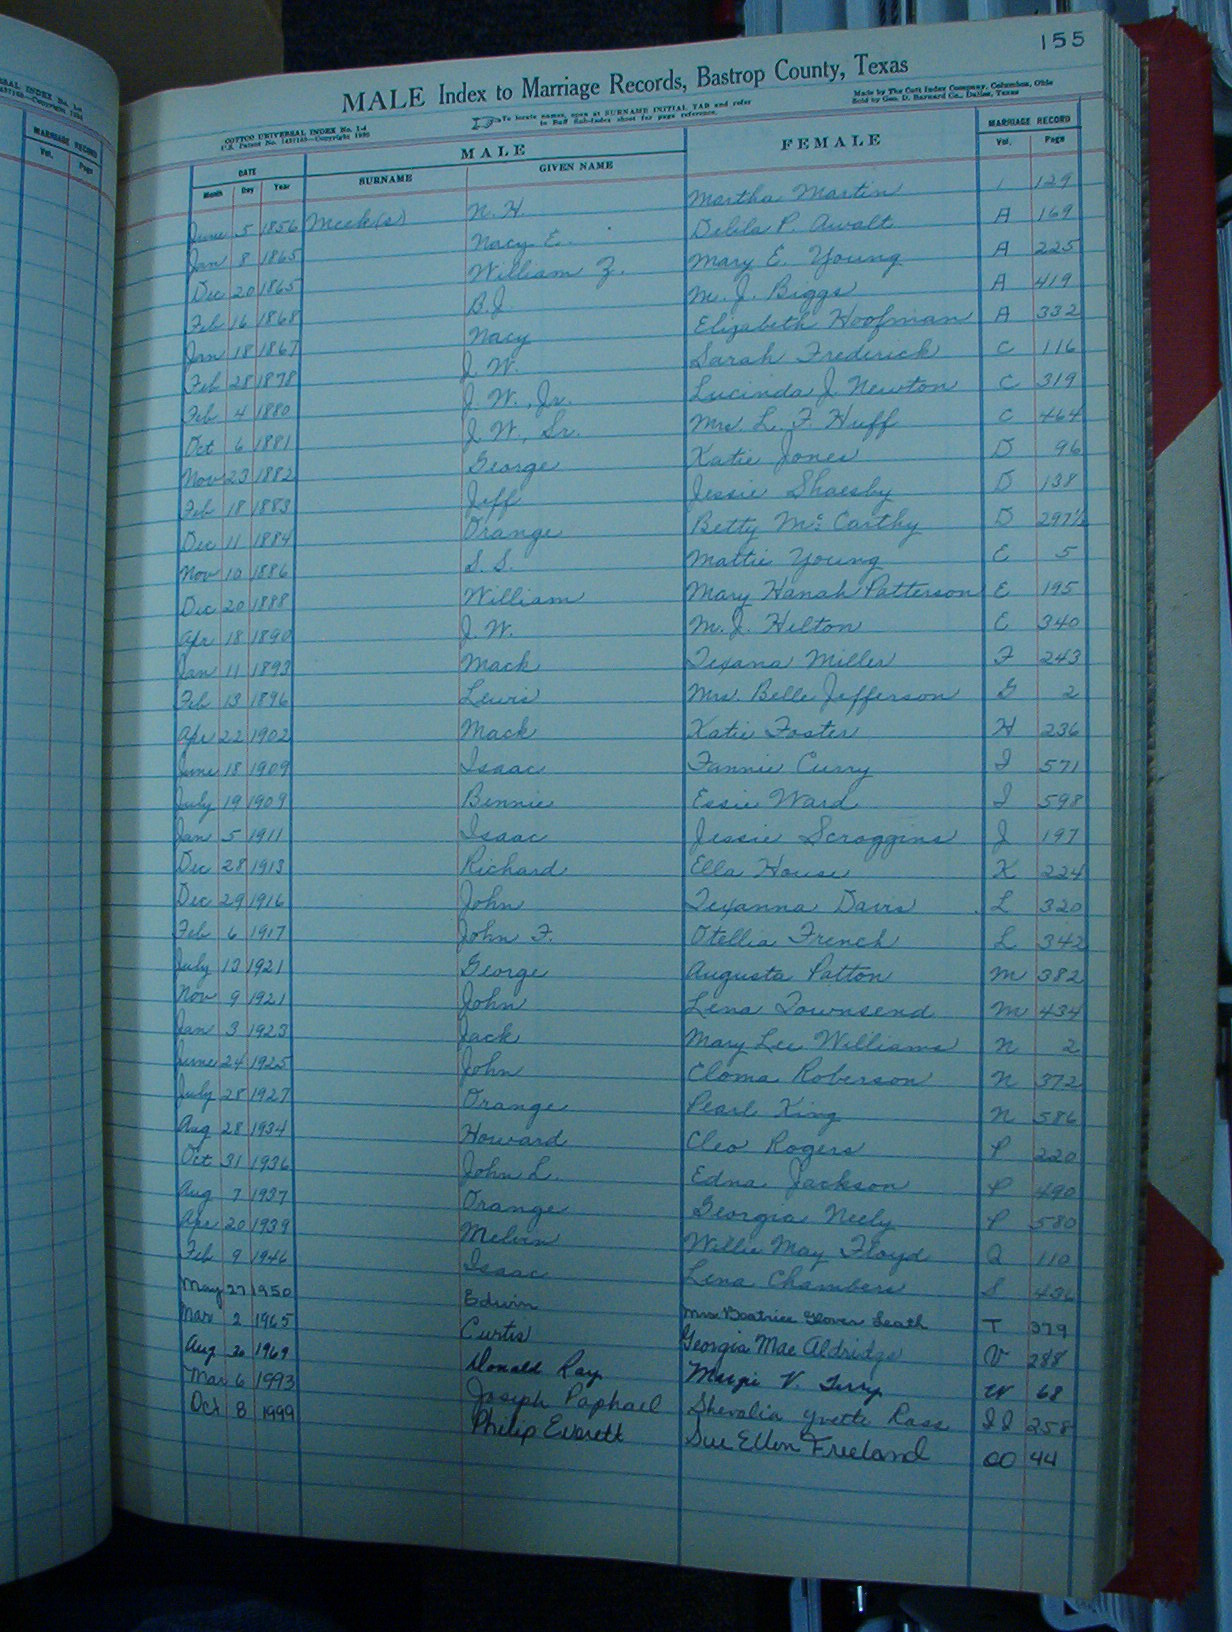 155
MALE Index to Marriage Records, Bastrop County, Texas
COTTCO UNIVERSAL INDEX No. 1-d
U.S. Patent No. 1427165—Copyright 1930
To locate names, open at SURNAME INITIAL TAB and refer
to Buff Sub-Index sheet for page reference.
Made by The Cott Index Company, Columbus, Ohio
Sold by Geo. D. Barnard Co., Dallas, Texas
DATE MALE FEMALE MARRIAGE RECORD
Month Day Year SURNAME GIVEN NAME Vol. Page
June 5 1856 Meek(s) N. H. Martha Martin 1 129
Jan 8 1865 Nacy E. Delila P. Awalt A 169
Dec 20 1865 William Z. Mary E. Young A 225
Feb 16 1868 B.J M. J. Biggs A 419
Jan 18 1867 Nacy Elizabeth Hoofman A 332
Feb 28 1878 J. W. Sarah Frederick C 116
Feb 4 1880 J. W., Jr. Lucinda J Newton C 319
Oct 6 1881 J W, Sr. Mrs. L. F. Huff C 464
Nov 23 1882 George Katie Jones D 96
Feb 18 1883 Jeff Jessie Shaesby D 138
Dec 11 1884 Orange Betty Mc Carthy D 297½
Nov 10 1886 S. S. Mattie Young E 5
Dec 20 1888 William Mary Hanah Patterson E 195
Apr 18 1890 J. W. M. J. Hilton E 340
Jan 11 1893 Mack Texana Miller F 243
Feb 13 1896 Lewis Mrs. Belle Jefferson G 2
Apr 22 1902 Mack Katie Foster H 236
June 18 1909 Isaac Fannie Curry I 571
July 19 1909 Bennie Essie Ward I 598
Jan 5 1911 Isaac Jessie Scroggins J 197
Dec 28 1913 Richard Ella House K 224
Dec 29 1916 John Texanna Davis L 320
Feb 6 1917 John F. Otellia French L 342
July 13 1921 George Augusta Patton M 382
Nov 9 1921 John Lena Townsend M 434
Jan 3 1923 Jack Mary Lee Williams N 2
June 24 1925 John Cloma Roberson N 372
July 28 1927 Orange Pearl King N 586
Aug 28 1934 Howard Cleo Rogers P 220
Oct 31 1936 John L. Edna Jackson P 490
Aug 7 1937 Orange Georgia Neely P 580
Apr 20 1939 Melvin Willie May Floyd Q 110
Feb 9 1946 Isaac Lena Chambers S 436
May 27 1950 Edwin Mrs Beatrice Glover Leath T 379
Mar 2 1965 Curtis Georgia Mae Aldridge V 288
Aug 20 1969 Donald Ray Margie V. Terry W 68
Mar 6 1993 Joseph Raphael Shevalia Yvette Ross II 258
Oct 8 1999 Philip Everett Sue Ellen Freeland OO 44
MARRIAGE RECORD
Vol. Page